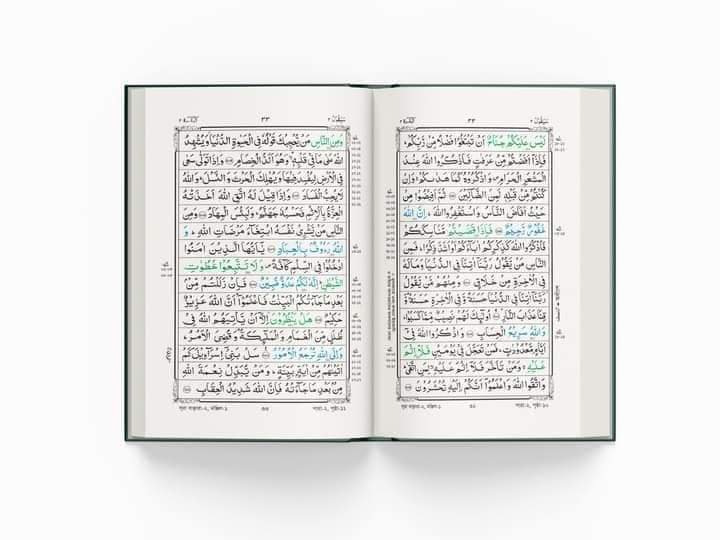 سَيَقُوْلُ ٢ ٣٢ البقرة ٢
لَيْسَ عَلَيْكُمْ جُنَاحٌ اَنْ تَبْتَغُوْا فَضْلًا مِّنْ رَّبِّكُمْ ؕ
فَاِذَآ اَفَضْتُمْ مِّنْ عَرَفٰتٍ فَاذْكُرُوا اللّٰهَ عِنْدَ
الْمَشْعَرِ الْحَرَامِ ۪ وَاذْكُرُوْهُ كَمَا هَدٰىكُمْ ۚ وَاِنْ
كُنْتُمْ مِّنْ قَبْلِهٖ لَمِنَ الضَّآلِّيْنَ ﴿١٩٨﴾ ثُمَّ اَفِيْضُوْا مِنْ
حَيْثُ اَفَاضَ النَّاسُ وَاسْتَغْفِرُوا اللّٰهَ ؕ اِنَّ اللّٰهَ
غَفُوْرٌ رَّحِيْمٌ ﴿١٩٩﴾ فَاِذَا قَضَيْتُمْ مَّنَاسِكَكُمْ
فَاذْكُرُوا اللّٰهَ كَذِكْرِكُمْ اٰبَآءَكُمْ اَوْ اَشَدَّ ذِكْرًا ؕ فَمِنَ
النَّاسِ مَنْ يَّقُوْلُ رَبَّنَآ اٰتِنَا فِى الدُّنْيَا وَمَا لَهٗ
فِى الْاٰخِرَةِ مِنْ خَلَاقٍ ﴿٢٠٠﴾ وَمِنْهُمْ مَّنْ يَّقُوْلُ
رَبَّنَآ اٰتِنَا فِى الدُّنْيَا حَسَنَةً وَّفِى الْاٰخِرَةِ حَسَنَةً
وَّقِنَا عَذَابَ النَّارِ ﴿٢٠١﴾ اُولٰٓئِكَ لَهُمْ نَصِيْبٌ مِّمَّا كَسَبُوْا ؕ
وَاللّٰهُ سَرِيْعُ الْحِسَابِ ﴿٢٠٢﴾ وَاذْكُرُوا اللّٰهَ فِيْٓ
اَيَّامٍ مَّعْدُوْدٰتٍ ؕ فَمَنْ تَعَجَّلَ فِيْ يَوْمَيْنِ فَلَآ اِثْمَ
عَلَيْهِ ۚ وَمَنْ تَاَخَّرَ فَلَآ اِثْمَ عَلَيْهِ ۙ لِمَنِ اتَّقٰى ؕ
وَاتَّقُوا اللّٰهَ وَاعْلَمُوْٓا اَنَّكُمْ اِلَيْهِ تُحْشَرُوْنَ ﴿٢٠٣﴾
সূরা বাক্বারা-২, মঞ্জিল-১ ৩২ পারা-২, পৃষ্ঠা-১০
سَيَقُوْلُ ٢ ٣٣ البقرة ٢
وَمِنَ النَّاسِ مَنْ يُّعْجِبُكَ قَوْلُهٗ فِى الْحَيٰوةِ الدُّنْيَا وَيُشْهِدُ
اللّٰهَ عَلٰى مَا فِيْ قَلْبِهٖ ۙ وَهُوَ اَلَدُّ الْخِصَامِ ﴿٢٠٤﴾ وَاِذَا تَوَلّٰى سَعٰى
فِى الْاَرْضِ لِيُفْسِدَ فِيْهَا وَيُهْلِكَ الْحَرْثَ وَالنَّسْلَ ؕ وَاللّٰهُ
لَا يُحِبُّ الْفَسَادَ ﴿٢٠٥﴾ وَاِذَا قِيْلَ لَهُ اتَّقِ اللّٰهَ اَخَذَتْهُ
الْعِزَّةُ بِالْاِثْمِ فَحَسْبُهٗ جَهَنَّمُ ؕ وَلَبِئْسَ الْمِهَادُ ﴿٢٠٦﴾ وَمِنَ
النَّاسِ مَنْ يَّشْرِيْ نَفْسَهُ ابْتِغَآءَ مَرْضَاتِ اللّٰهِ ؕ وَ
اللّٰهُ رَءُوْفٌۢ بِالْعِبَادِ ﴿٢٠٧﴾ يٰٓاَيُّهَا الَّذِيْنَ اٰمَنُوا
ادْخُلُوْا فِى السِّلْمِ كَآفَّةً ۪ وَلَا تَتَّبِعُوْا خُطُوٰتِ
الشَّيْطٰنِ ؕ اِنَّهٗ لَكُمْ عَدُوٌّ مُّبِيْنٌ ﴿٢٠٨﴾ فَاِنْ زَلَلْتُمْ مِّنْۢ
بَعْدِ مَا جَآءَتْكُمُ الْبَيِّنٰتُ فَاعْلَمُوْٓا اَنَّ اللّٰهَ عَزِيْزٌ
حَكِيْمٌ ﴿٢٠٩﴾ هَلْ يَنْظُرُوْنَ اِلَّآ اَنْ يَّاْتِيَهُمُ اللّٰهُ فِيْ
ظُلَلٍ مِّنَ الْغَمَامِ وَالْمَلٰٓئِكَةُ وَقُضِىَ الْاَمْرُ ؕ
وَاِلَى اللّٰهِ تُرْجَعُ الْاُمُوْرُ ﴿٢١٠﴾ سَلْ بَنِيْٓ اِسْرَآءِيْلَ كَمْ
اٰتَيْنٰهُمْ مِّنْ اٰيَةٍۢ بَيِّنَةٍ ؕ وَمَنْ يُّبَدِّلْ نِعْمَةَ اللّٰهِ
مِنْۢ بَعْدِ مَا جَآءَتْهُ فَاِنَّ اللّٰهَ شَدِيْدُ الْعِقَابِ ﴿٢١١﴾
সূরা বাক্বারা-২, মঞ্জিল-১ ৩৩ পারা-২, পৃষ্ঠা-১১